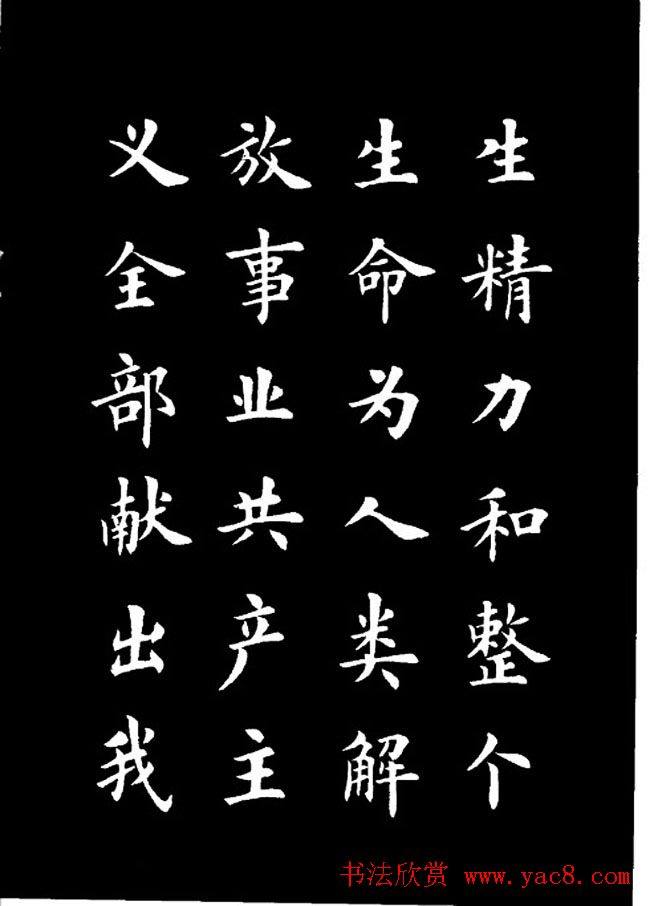 生精力和整个
生命为人类解
放事业共产主
义全部献出我
书法欣赏 www.yac8.com